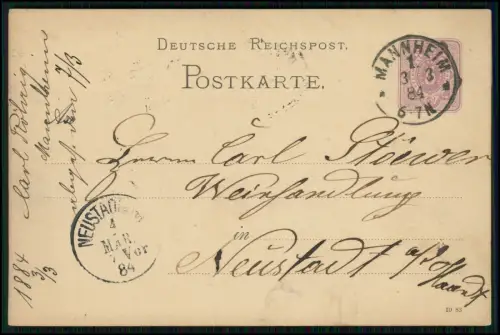 DEUTSCHE REICHSPOST.
POSTKARTE.
MANNHEIM
1
3 3
84
6-7N
Herrn Carl Stöwer
Weinhandlung
in
Neustadt a/d
Haardt
NEUSTADT
4
MÄR.
7 Vor
84
1884 3/3
Carl Röhrig
Mannheim
7/3
10 83